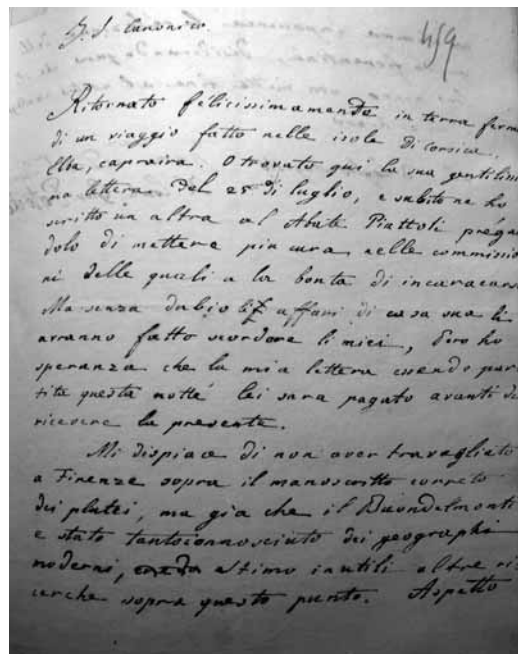 S. S. Canonico.
459
Ritornato felicissimamente in terra ferma
di un viaggio fatto nelle isole di corsica,
Elba, capraira. O trovato qui la sua gentilissi
ma lettera del 25 di luglio, e subito ne ho
scritto un altra al Abate Piattoli pregan
dolo di mettere piu cura nelle commissio
ni delle quali a la bonta di incaracarsi
Ma senza dubio affari di casa sua li
avranno fatto scordare li miei, Pero ho
speranza che la mia lettera essendo par
tita questa notte lei sara pagato avanti di
ricevere la presente.
Mi dispiace di non aver travagliato
a Firenze sopra il manuscritto correto
dei plutei, ma gia che il Buondelmonti
e stato tantoconnosciuto dei geographi
moderni, stimo inutili altre ri
cerche sopra questo punto. Aspetto